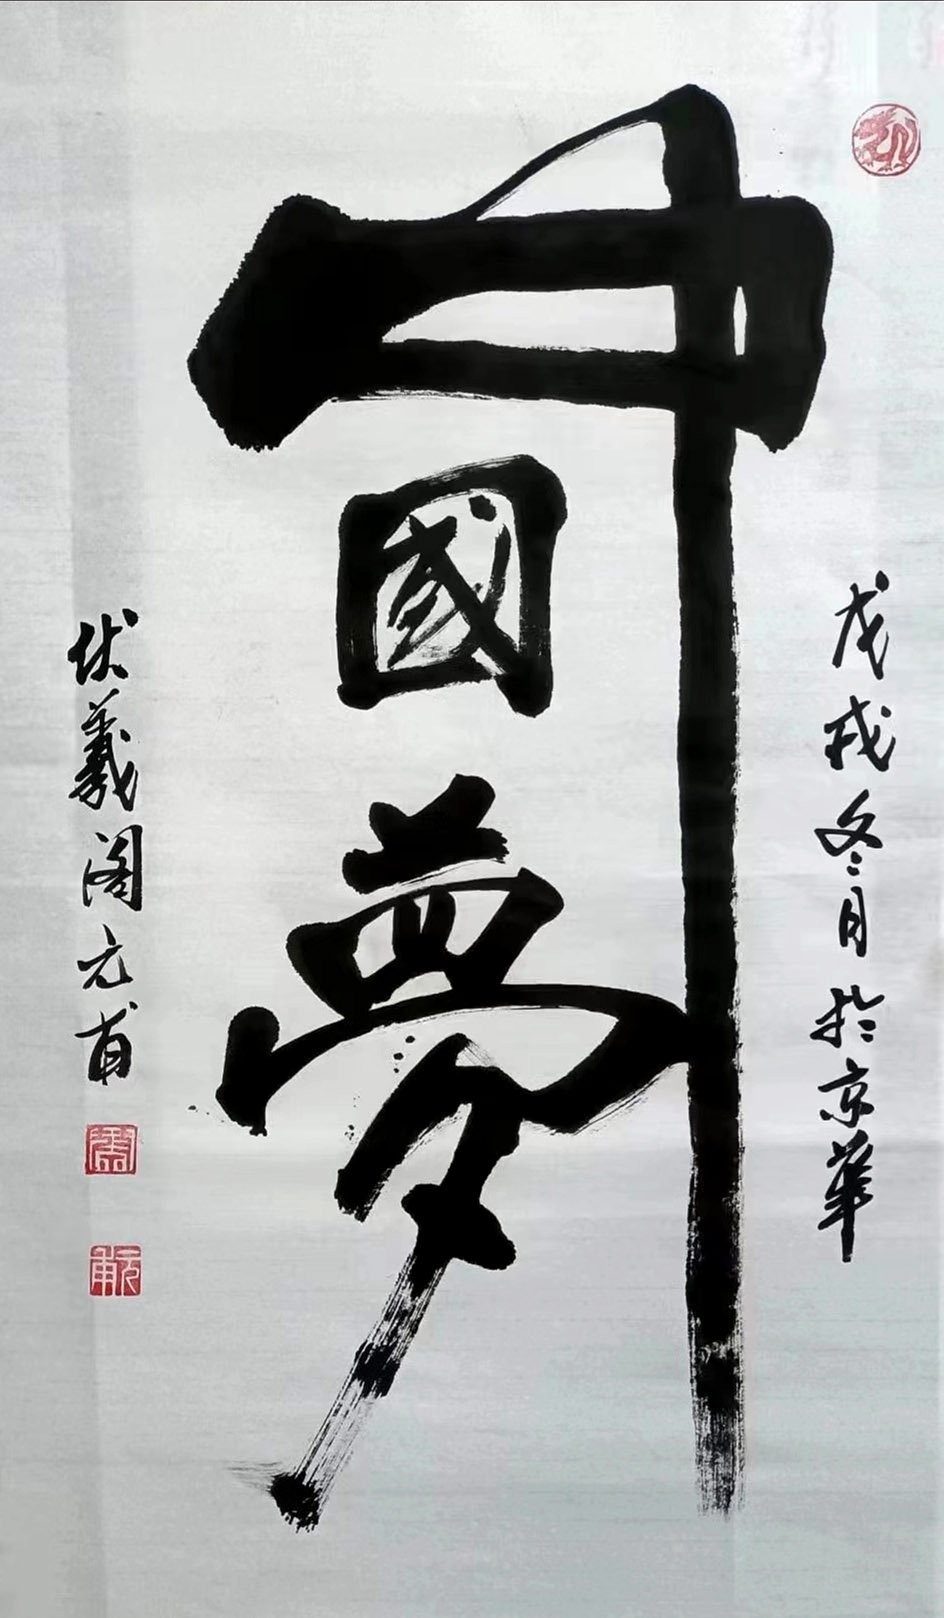 中國夢
戊戌冬月於京華
伏羲阁元甫
元甫